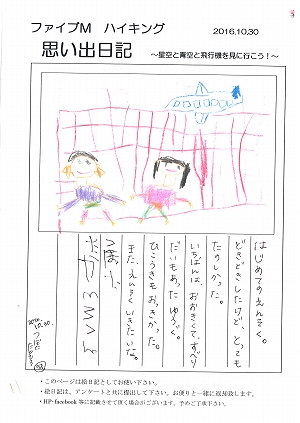 ファイブM ハイキング
2016.10.30
思い出日記
～星空と青空と飛行機を見に行こう！～
はじめてのえんそく。
どきどきしたけど、とっても
たのしかった。
いちばんは、おおきくて、すべり
だいもあったゆうぐ。
ひこうきもおっきかった。
また、えんそくいきたいな。
・このページは絵日記としてお使い下さい。
・絵日記は、アンケートと共に提出して下さい。お便りと一緒に返却致します。
・HP・facebook 等に記載させて頂く場合がございます。予めご了承下さい。